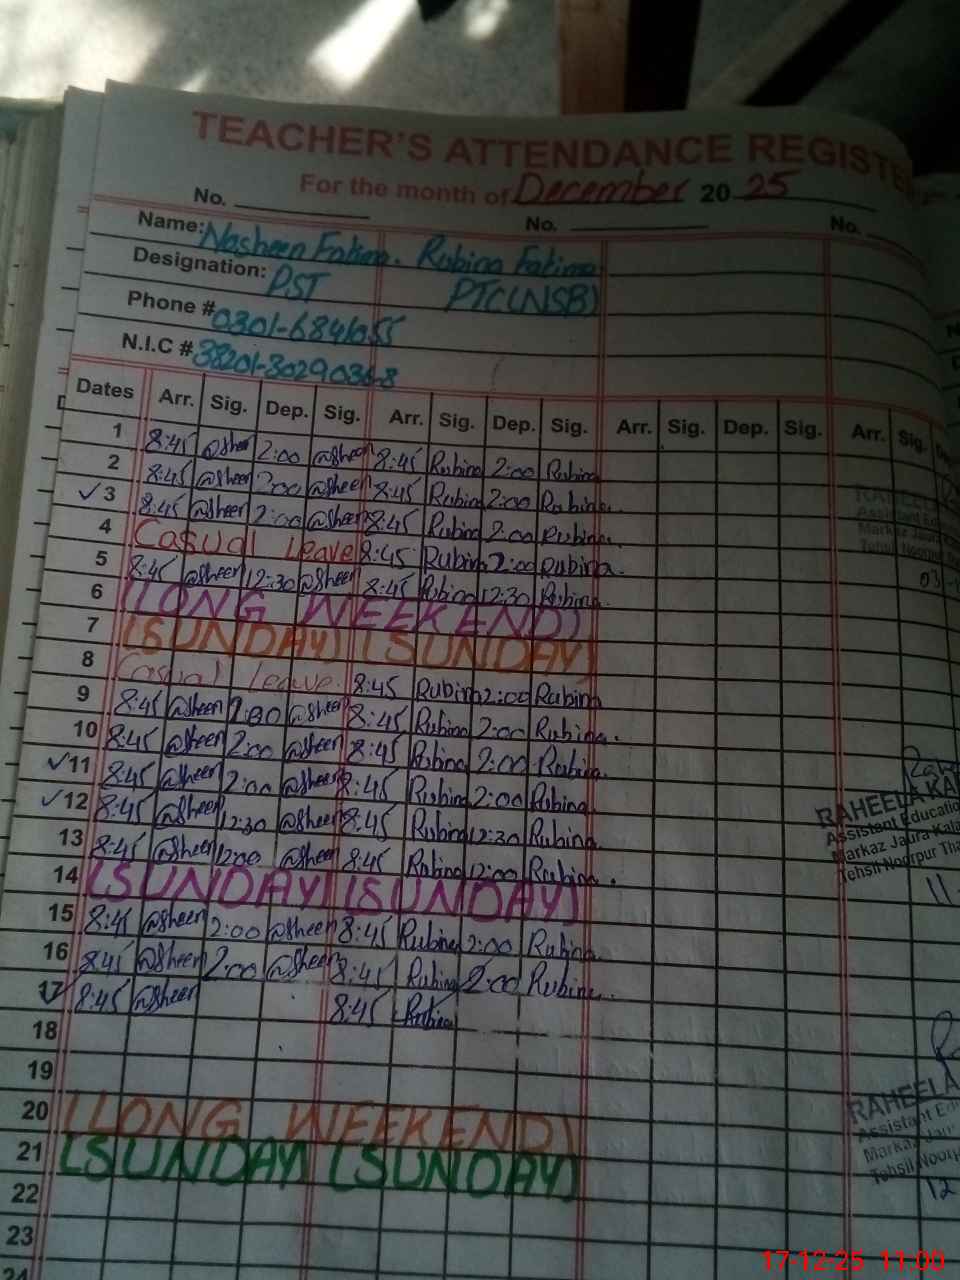 TEACHER'S ATTENDANCE REGISTE
For the month of December 20 25
No. No. No.
Name: Nosheen Fatima. Rubina Fatima
Designation: PST PTC(NSB)
Phone # 0301-6841055
N.I.C # 38201-3029036-8
Dates Arr. Sig. Dep. Sig. Arr. Sig. Dep. Sig. Arr. Sig. Dep. Sig. Arr. Sig.
1 8:45 @sheen 2:00 @sheen 8:45 Rubina 2:00 Rubina
2 8:45 @sheen 2:00 @sheen 8:45 Rubina 2:00 Rubina.
✓3 8:45 @sheen 2:00 @sheen 8:45 Rubina 2:00 Rubina.
4 Casual Leave 8:45 Rubina 2:00 Rubina.
5 8:45 @sheen 12:30 @sheen 8:45 Rubina 12:30 Rubina.
6 (LONG WEEKEND)
7 (SUNDAY) (SUNDAY)
8 Casual leave. 8:45 Rubina 2:00 Rubina
9 8:45 @sheen 2:00 @sheen 8:45 Rubina 2:00 Rubina.
10 8:45 @sheen 2:00 @sheen 8:45 Rubina 2:00 Rubina.
✓11 8:45 @sheen 2:00 @sheen 8:45 Rubina 2:00 Rubina
✓12 8:45 @sheen 12:30 @sheen 8:45 Rubina 12:30 Rubina.
13 8:45 @sheen 12:00 @sheen 8:45 Rubina 12:00 Rubina.
14 (SUNDAY) (SUNDAY)
15 8:45 @sheen 2:00 @sheen 8:45 Rubina 2:00 Rubina
16 8:45 @sheen 2:00 @sheen 8:45 Rubina 2:00 Rubina.
17 8:45 @sheen 8:45 Rubina
18
19
20 (LONG WEEKEND)
21 (SUNDAY) (SUNDAY)
22
23
24
RAHEEL
Assistant Edu
Markaz Jaura
Tehsil Noorpur
03
RAHEELA KA
Assistent Educatio
Markaz Jaura Kala
Tehsil Noorpur Tha
11
RAHEELA
Assistant Edu
Markaz Jaur
Tehsil Noorp
12
17-12-25 11:00